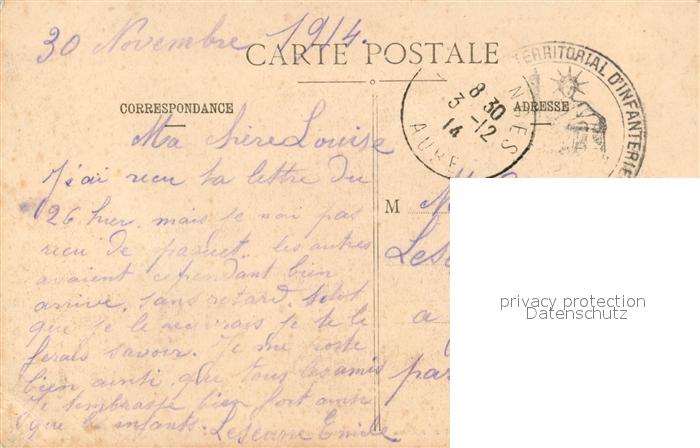 30 Novembre 1914.
CARTE POSTALE
TERRITORIAL D'INFANTERIE
8 30
3 -12
14
CORRESPONDANCE
ADRESSE
Ma chère Louise
J'ai recu ta lettre du
26 hier, mais je nai pas
recu de paquet. les autres
avaient cependant bien
arrivé, sans retard. sitot
que je le recevrais je te le
ferais savoir. Je me porte
bien ainsi que tous les amis
Je tembrasse bien fort ainsi
que le enfants. Emile
M
a
par
privacy protection
Datenschutz